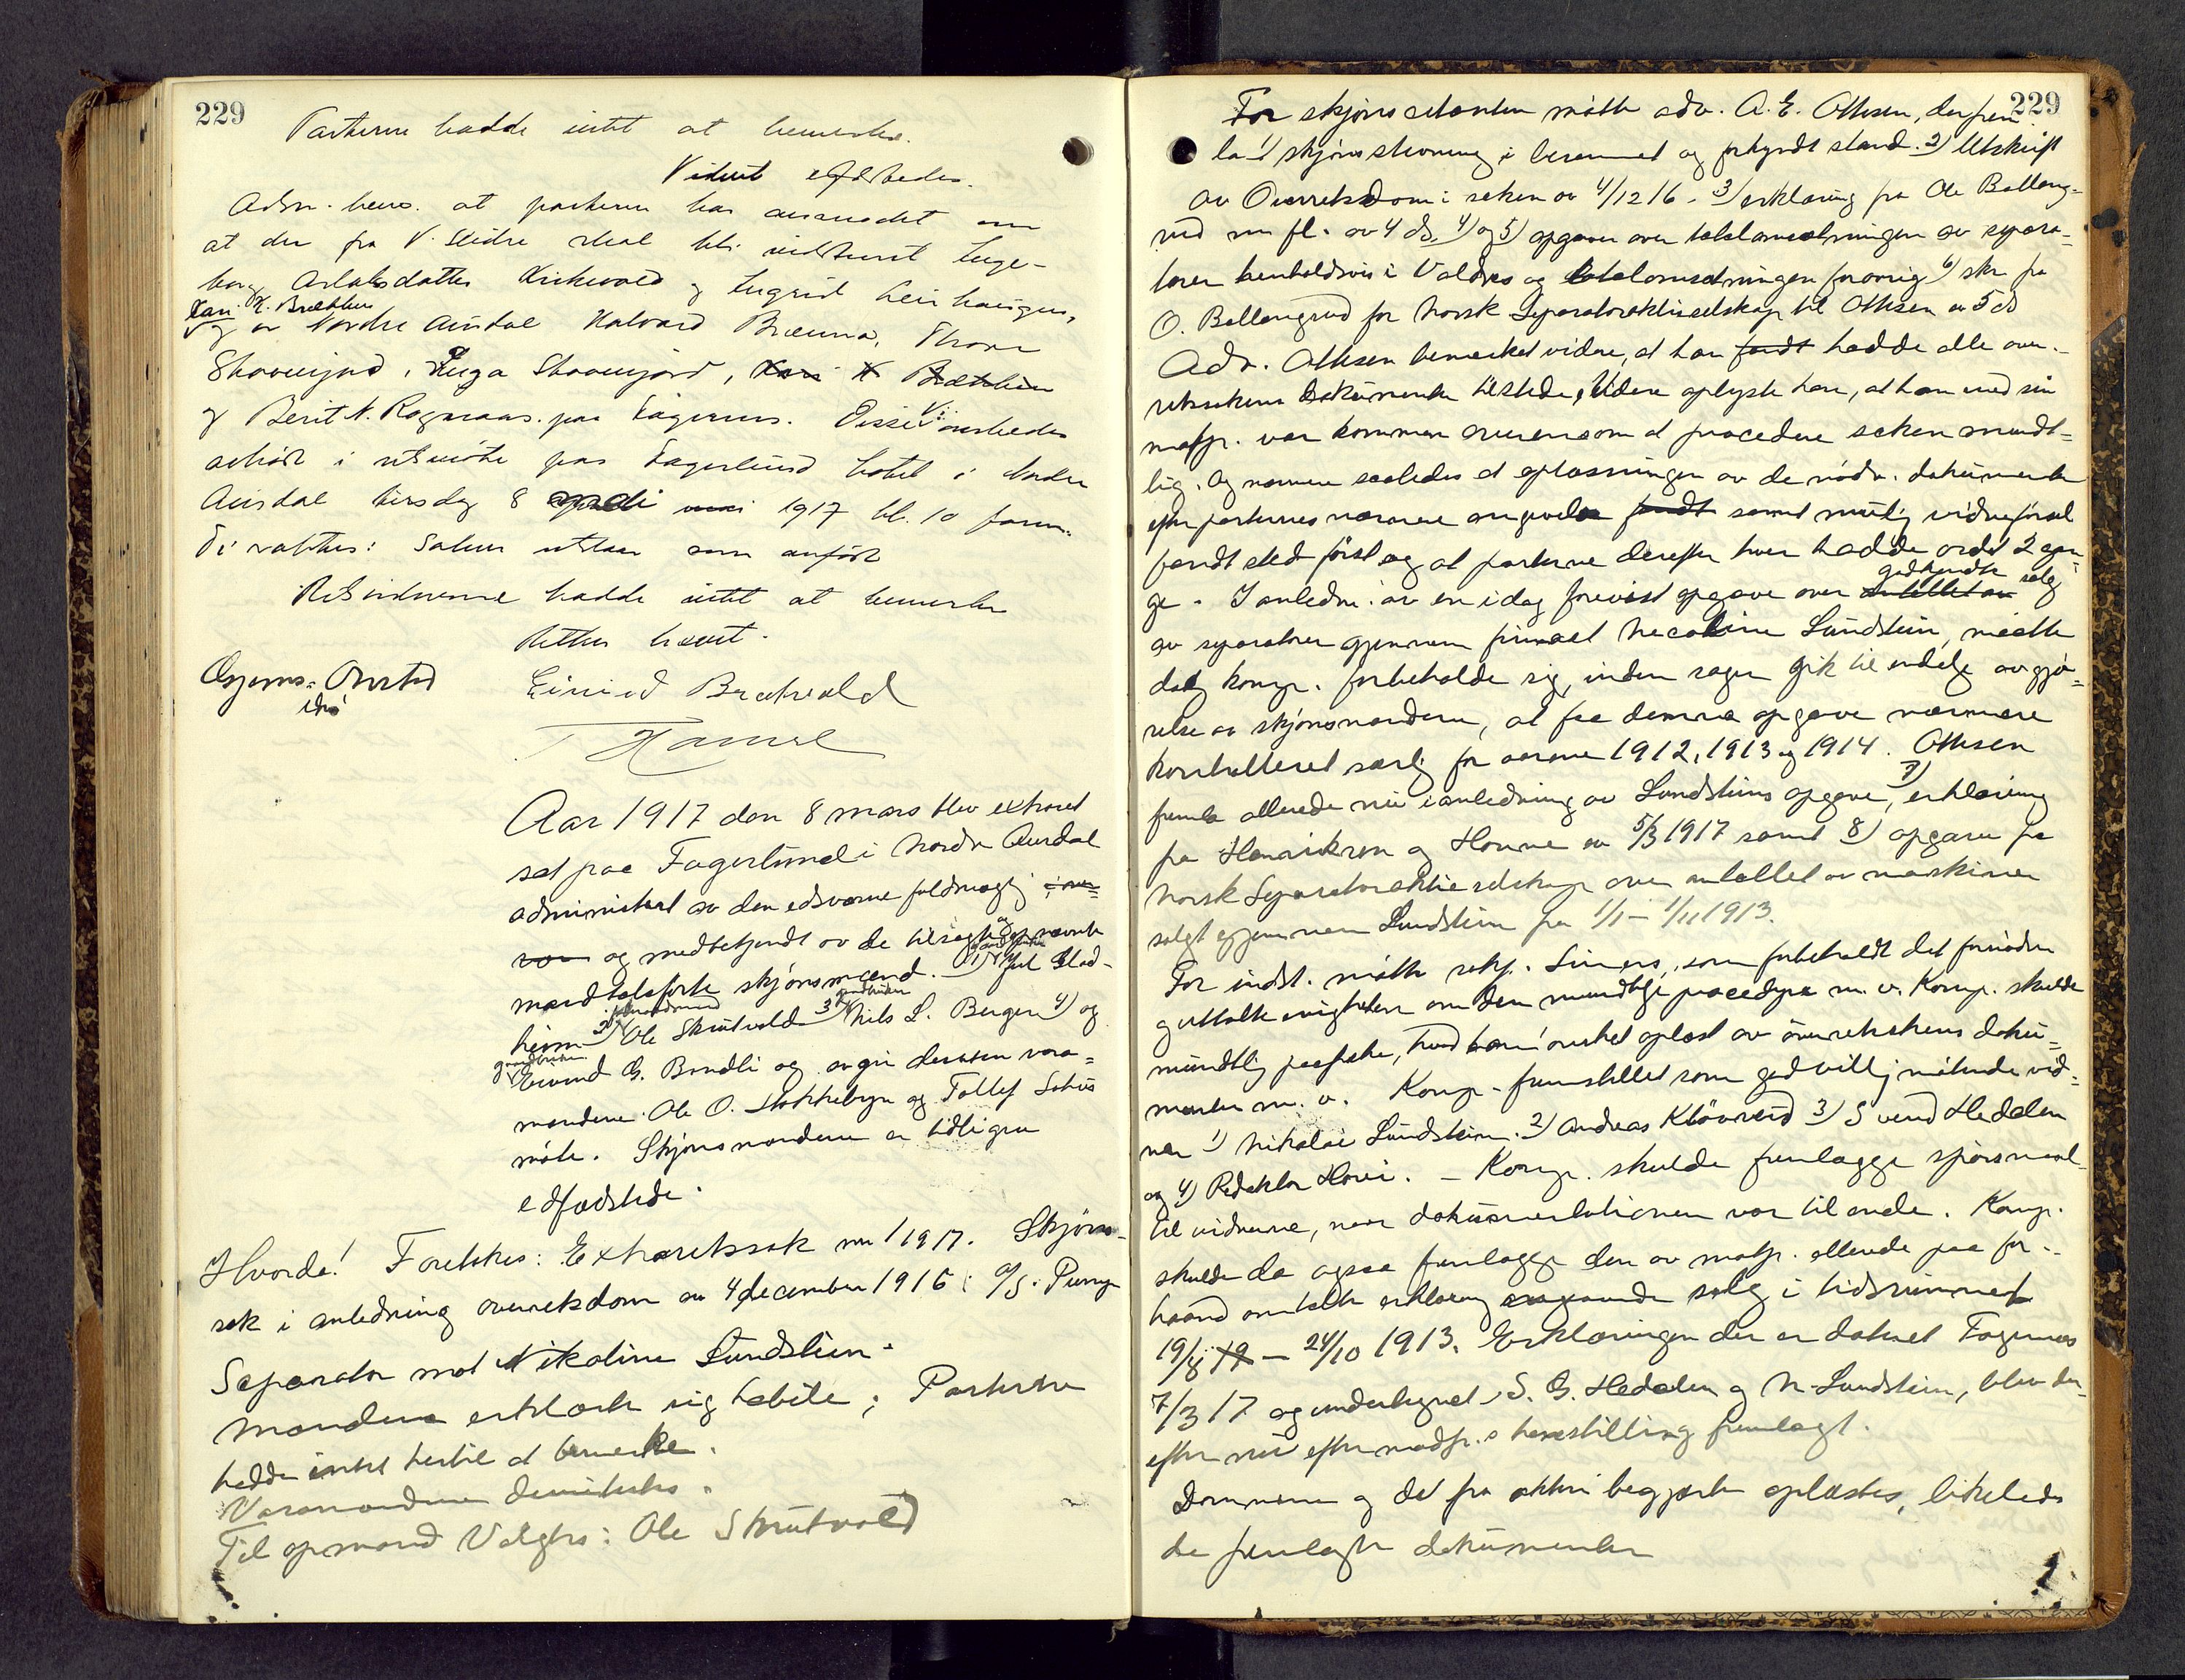 229
Parterne hadde intet at bemerke.
Vidnet eftedes.
Adm. bem. at parterne har anmodet om
at der fra V. Slidre skal bli indstevnt Inge-
borg Aslaksdatter Kirkevold og Ingrid
Kari K. Brattlien
og av Nordre Aurdal Halvard Brænna, Thora
Skavengjord, Inga Skavengjord, Kari K Brattlien
og Berit N. Rogmaas. paa Fagernes. Disse Vi
avhørt i retsmøte paa Fagerlund hotel i Nordre
Aurdal tirsdag 8 mai 1917 kl. 10 form.
Di vattes: Saken utstaar som anført
Retsvidnerne hadde intet at bemerke
Retten hævet.
Eivind Brattvold
Hamre
Aar 1917 den 8 mars blev extraret
sat paa Fagerlund i Nordre Aurdal
administrert av den edsvorne fuldmægtig
og medbetjendt av de tilsagte og nævnte
mandtalsførte skjønsmænd. 1) gaardbruker
heim 2) Ole Skrutvold 3) gaardbruker Nils L. Bergen 4) og
gaardbruker Eivind G. Brudli og avgir dessuten vara-
mændene Ole O. Stokkebryn og Tollef Sohus
møte. Skjønsmændene er tidligere
edfæstede.
Hvorda! Foretokes: Extraretssak nr 1 1917. Skjøns-
sak i anledning overretsdom av 4 december 1916: A/S. Pump
Separator mot Nikoline Lundstein.
Mændene erklærte sig habile; Parterne
hadde intet hertil at bemerke.
Varamændene demitertes.
Til opmand Valgtes: Ole Skrutvold
229
For skjønscitanten møtte adv. A. E. Ottesen, der frem-
la 1) skjønsstevning i beramnet og forkyndt stand. 2) Utskrift
av Overretsdom i saken av 4/12 16. 3) erklæring fra Ole Ballang-
rud m fl. av 4 ds. 4) og 5) opgaver over totalomsætningen av separa-
torer henholdsvis i Valdres og totalomsætningen forøvrig 6) skr fra
O. Ballangrud for Norsk Separatoraktieselskap til Ottesen av 5 ds
Adv. Ottesen bemerket videre, at han fandt hadde alle over-
retssakens dokumenter tilstede, videre oplyste han, at han med sin
motp. var kommen overens om at procedere saken mundt-
lig. Og nærmere saaledes at oplæsningen av de nødv. dokumenter
efter parternes nærmere angivelse fandt samt mulig vidneførsel
fandt sted først og at parterne derefter hver hadde ordet 2 gan-
ge. I anledn. av en idag forevist opgave over godkjendte antallet av salg
av separatorer gjennem firmaet Nicoline Lundstein, maatte
dog komp. forbeholde sig, inden sagen gik til endelig avgjø-
relse av skjønsmændene, at faa denne opgave nærmere
kontrolleret særlig for aarene 1912, 1913 og 1914. Ottesen
fremla allerede nu i anledning av Lundsteins opgave, 7) erklæring
fra Henriksen og Honne av 5/3 1917 samt 8) opgave fra
Norsk Separatoraktieselskap over antallet av maskiner
solgt gjennem Lundstein fra 1/1 - 1/11 1913.
For indst. møtte som forbeholdt det fornødne
og uttalte enigheten om den mundtlige procedyre m. v. Komp. skulde
mundtlig paapeke, hvad han ønsket oplæst av overretssakens doku-
menter m. v. Komp. fremstillet som godvillig møtende vid-
ner 1) Nikolai Lundstein. 2) Andreas Kløvrud 3) Svend Hedalen
og 4) Redaktør Hovi. - Komp. skulde fremlægge spørsmaal
til vidnerne, naar dokumentationen var til ende. Komp.
skulde da ogsaa fremlægge den av motp. allerede paa for-
haand omtalte erklæring angaaende salg i tidsrummet
19/8 12 - 24/10 1913. Erklæringen der er dateret Fagernes
7/3 17 og undertegnet S. G. Hedalen og N. Lundstein, blev der-
efter nu efter modp.s henstilling fremlagt.
Dommene og det fra akten begjærte oplæstes, likeledes
de fremlagte dokumenter